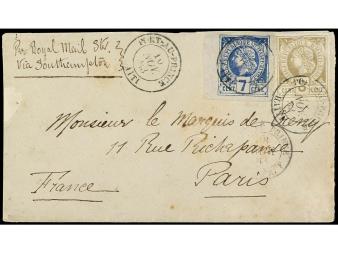 Per Royal Mail Str. 2
Via Southampton
PORT-AU-PRINCE
HAITI
7
CENT
Monsieur le Marquis de
11 Rue Richepanse
Paris
France